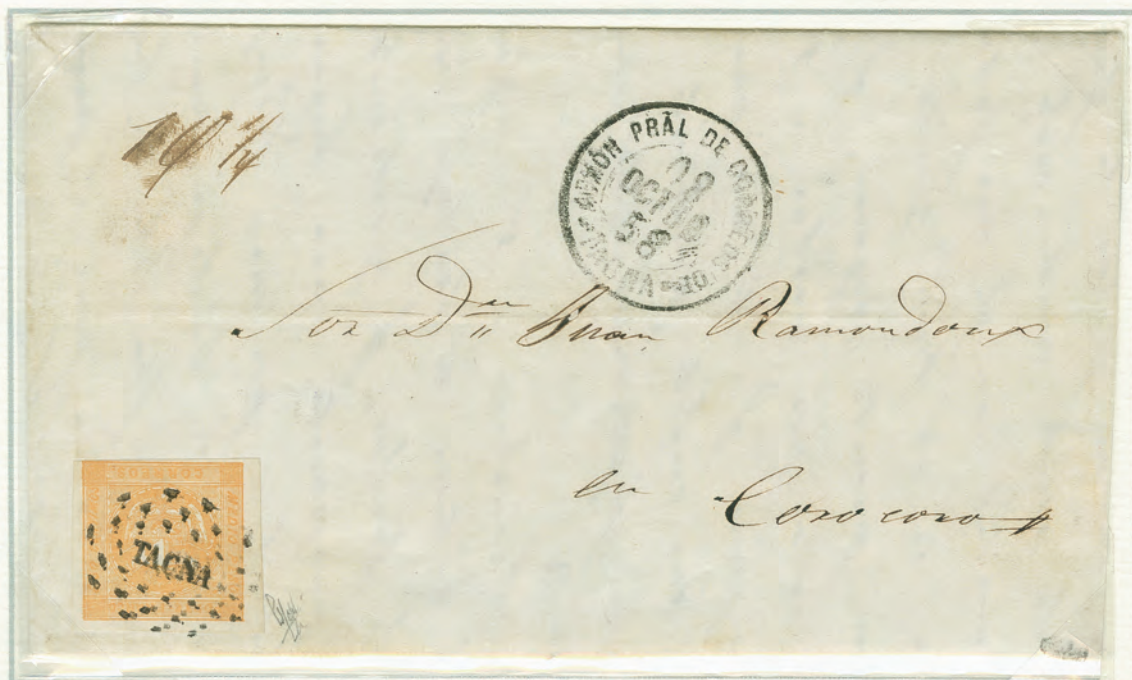 19 1/4
ADMÓN PRÃL DE CORREOS
09
OCTUB
58
TACNA
Sor Dn Juan Ramondoux
en Corocoro
CORREOS
MEDIO PESO
TACNA